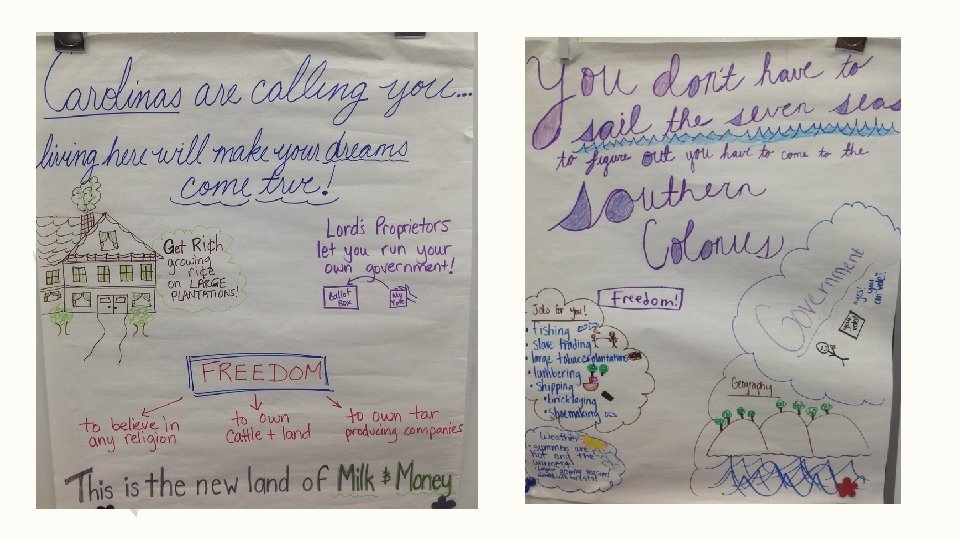 Carolinas are calling you...
living here will make your dreams
come true!
Get Rich
growing
rice
on LARGE
PLANTATIONS!
Lord's Proprietors
let you run your
own government!
Ballot
Box
My
Vote
FREEDOM
to believe in
any religion
to own
Cattle + land
to own tar
producing companies
This is the new land of Milk & Money
You don't have to
sail the seven seas
to figure out you have to come to the
Southern
Colonies
Freedom!
Jobs for you!
• Fishing
• slave trading
• large tobacco plantations
• lumbering
• shipping
• bricklaying
• Shoemaking
Government
yes!
you
can vote!
Geography
Weather
• summers are
hot and the
growing season!